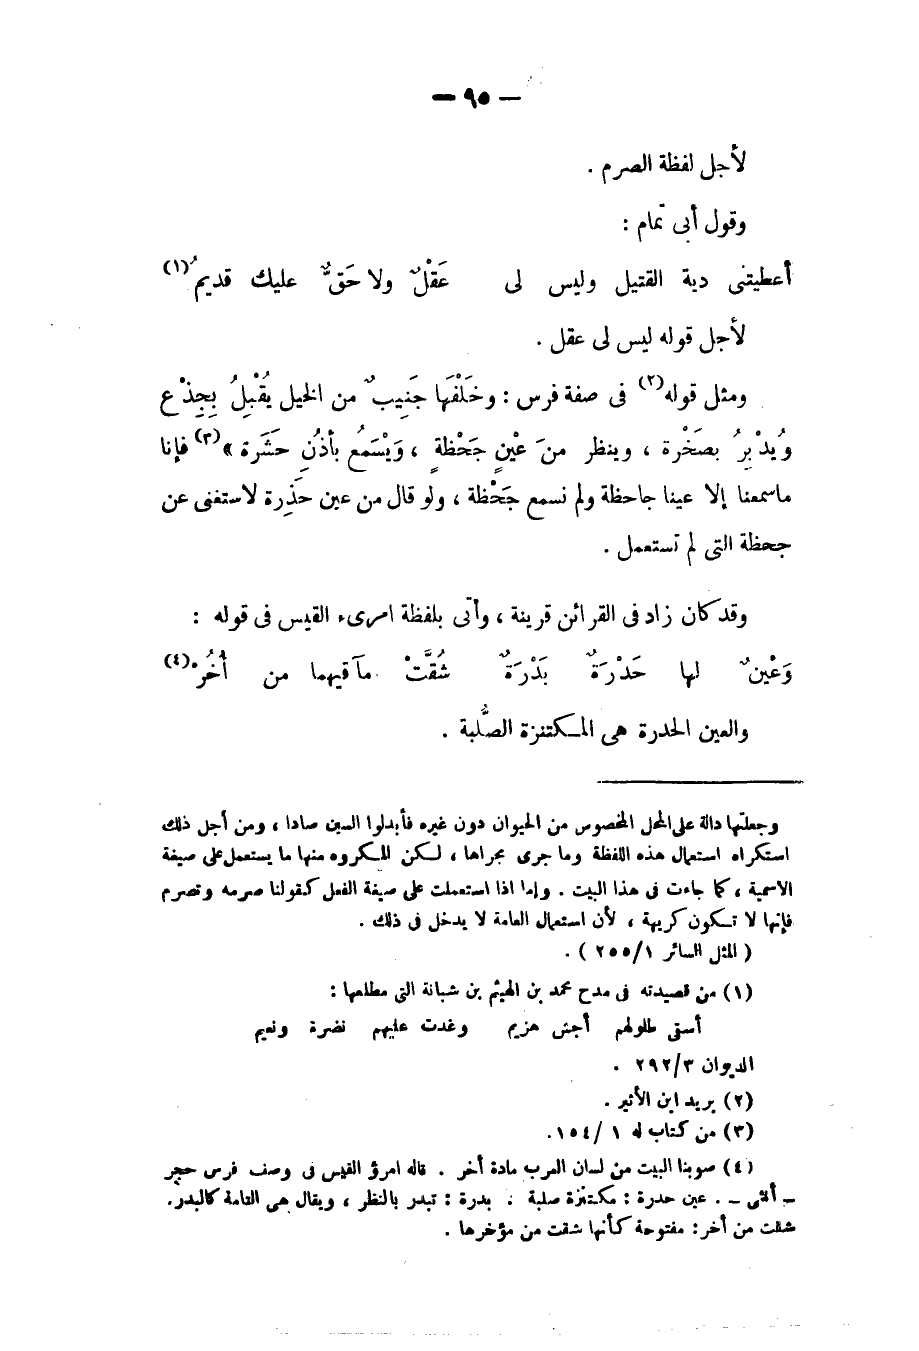 — ٩٥ —
لأجل لفظة الصرم .
وقول أبى تمام :
أعطيتنى دية القتيل وليس لى عَقْلٌ ولا حَقٌّ عليك قديمُ(١)
لأجل قوله ليس لى عقل .
ومثل قوله(٢) فى صفة فرس : وخَلْفَها جَنِيبٌ من الخيل يُقْبِلُ بِجِذْعٍ
ويُدْبِرُ بصَخْرة ، وينظر منَ عْينٍ جَحْظةٍ ، وَيَسْمَعُ بأذُنٍ حَشْرة »(٣) فإنا
ماسمعنا إلا عينا جاحظة ولم نسمع جَحْظة ، ولو قال من عين حَذِرة لاستغنى عن
جحظة التى لم تستعمل .
وقد كان زاد فى القرائن قرينة ، وأتى بلفظة امرىء القيس فى قوله :
وَعْينٌ لها حَدْرَةٌ بَدْرَةٌ شُقَّتْ مآقيهما من أُخُرْ(٤)
والعين الحدرة هى المكتنزة الصُّلبة .
وجعلتها دالة على المحل المخصوص من الحيوان دون غيره فأبدلوا السين صادا ، ومن أجل ذلك
استكراه استعمال هذه اللفظة وما جرى مجراها ، لكن المكروه منها ما يستعمل على صيغة
الاسمية ، كما جاءت فى هذا البيت . وإما اذا استعملت على صيغة الفعل كقولنا صرمه وتصرم
فإنها لا تكون كريهة ، لأن استعمال العامة لا يدخل فى ذلك .
( المثل السائر ١/٢٥٥ ) .
(١) من قصيدته فى مدح محمد بن الهيثم بن شبانة التى مطلعها :
أسقى طلولهم أجش هزيم وغدت عليهم نضرة ونعيم
الديوان ٣/٢٩٢ .
(٢) يريد ابن الأثير .
(٣) من كتاب له ١ /١٥٤.
(٤) صوبنا البيت من لسان العرب مادة أخر . قاله امرؤ القيس فى وصف فرس حجر
ــ أنثى ــ . عين حدرة : مكتنزة صلبة . بدرة : تبدر بالنظر ، ويقال هى التامة كالبدر.
شقت من أخر : مفتوحة كأنها شقت من مؤخرها .